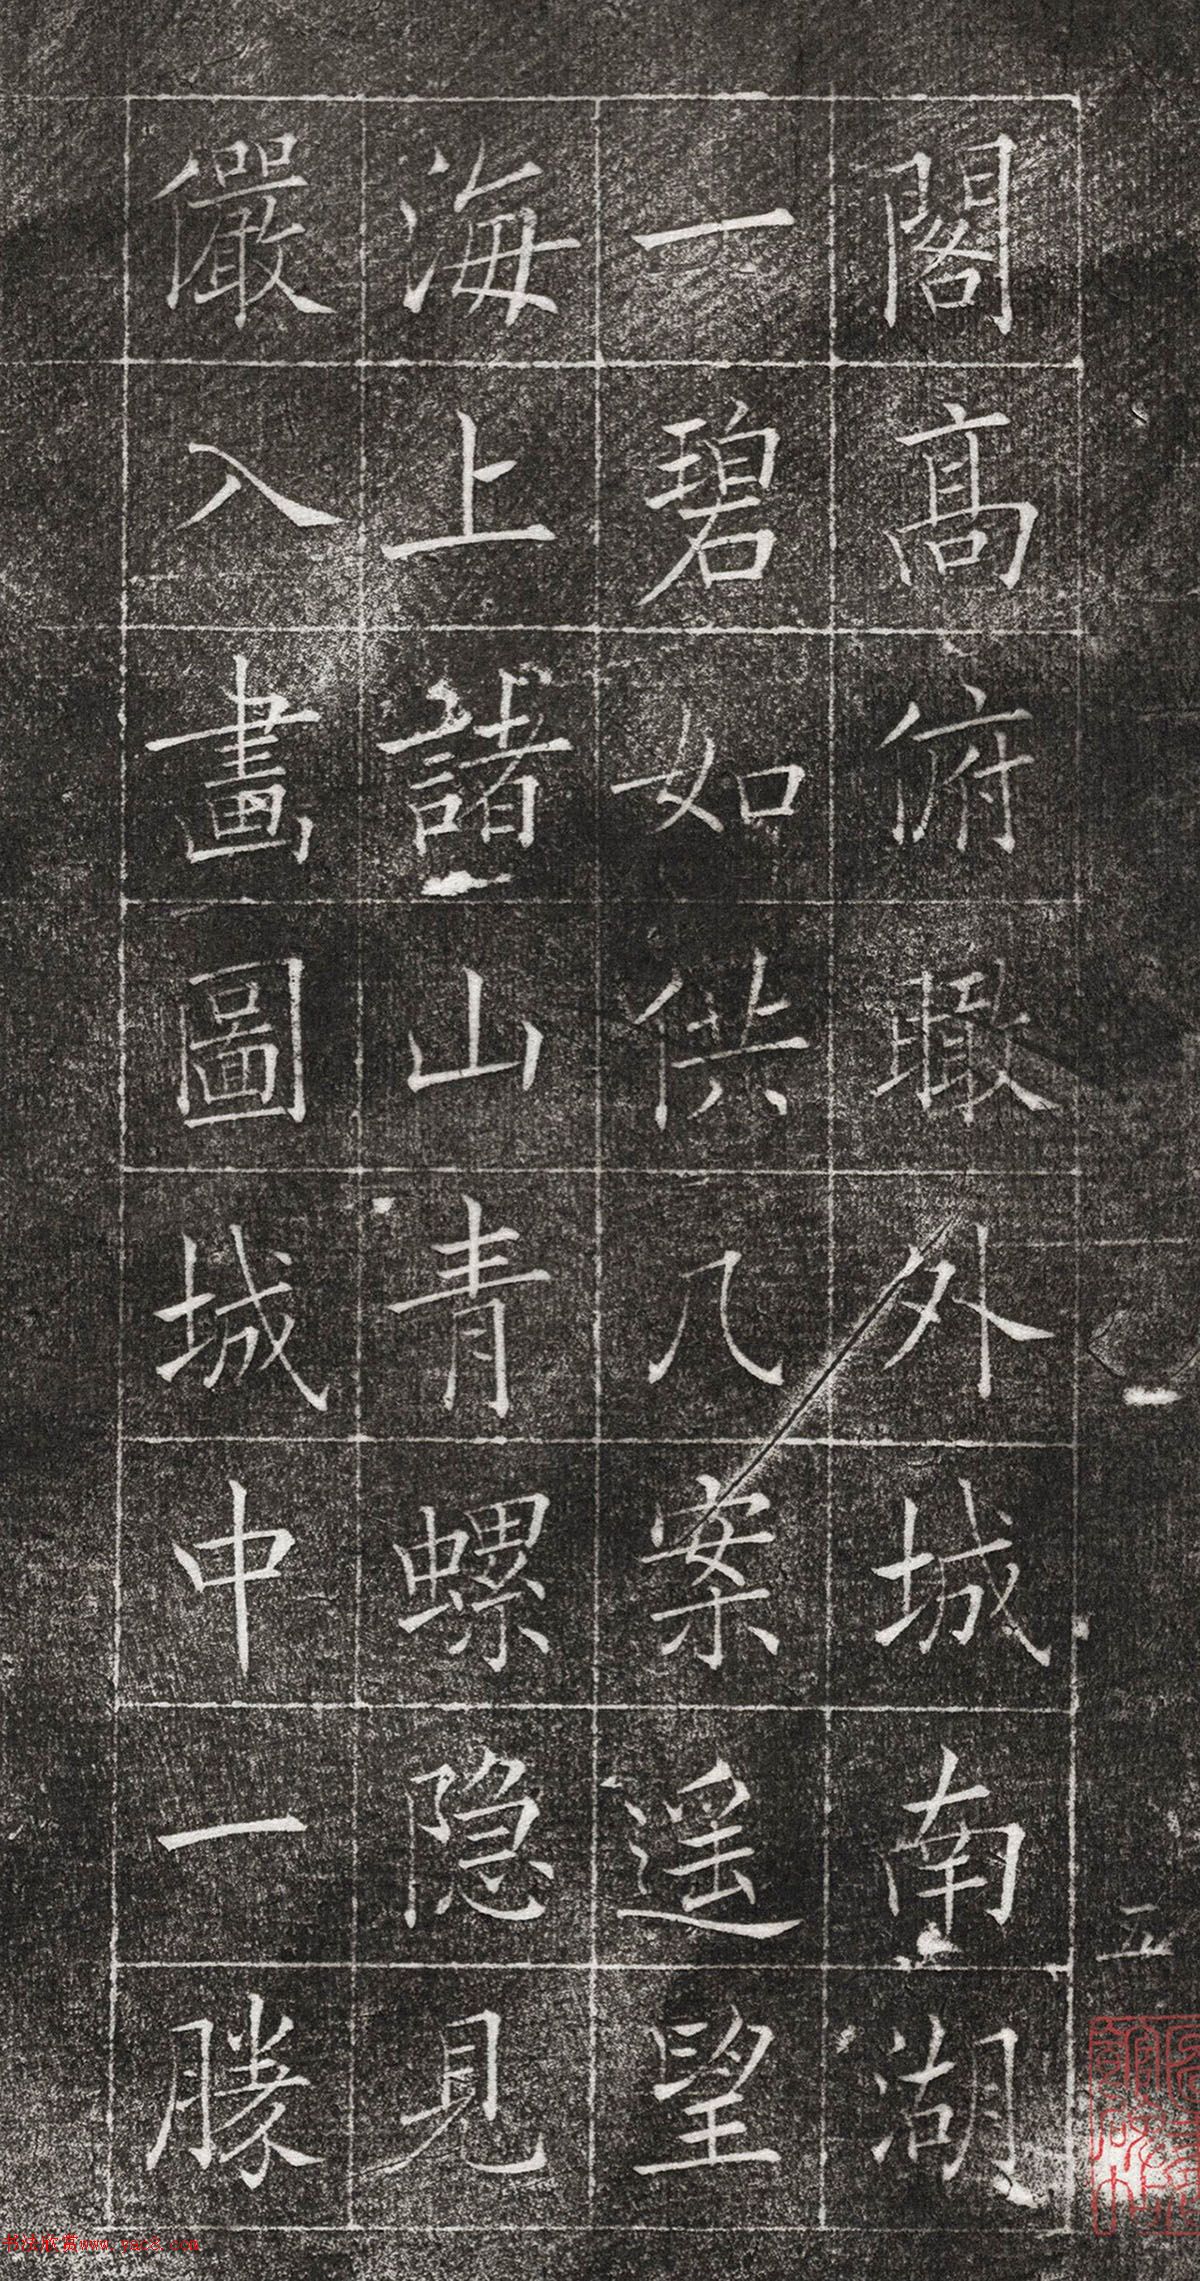 閣高俯瞰外城南湖
一碧如供几案遥望
海上諸山青螺隐見
儼入畫圖城中一勝
五
书法欣赏www.yac8.com